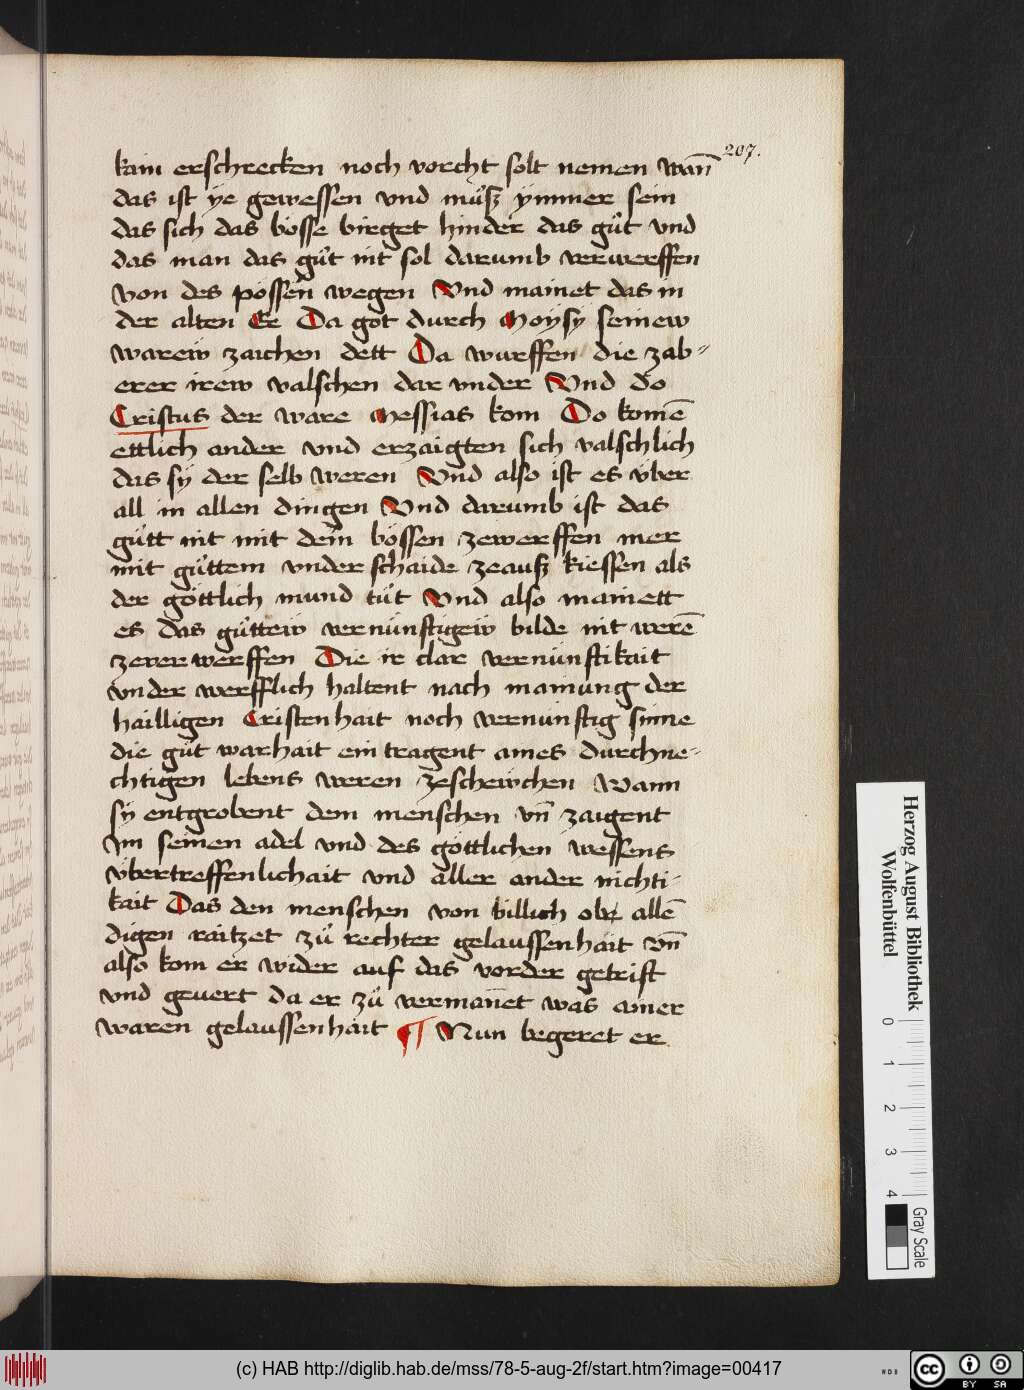 207.
kain erschrecken noch vorcht solt nemen wan̄
das ist ye gewessen vnd můsz ymmer sein
das sich das bösse birget hinder das gůt vnd
das man das gůt nit sol darumb verwerffen
von des possen wegen Vnd mainet das in
der alten Ee Da got durch Moysy seinew
warew zaichen dett Da wurffen die zab⸗
erer irew valschen dar vnder Vnd do
Cristus der ware Messias kom Do komē
ettlich ander vnd erzaigten sich valschlich
das sy der selb weren Vnd also ist es vber
all in allen dingen Vnd darumb ist das
gůtt nit mit dem bössen zewerffen mer
mit gůttem vnderschaide zeausz kiessen als
der göttlich mund tůt Vnd also mainett
es das gůttew vernünftigew bilde nit werē
zeverwerffen Die ir clar vernünftikait
vnderwerfflich haltent nach mainung der
hailligen Cristenhait noch vernünftig sinne
die gůt warhait ein tragent aines durchne⸗
chtigen lebens weren zeschewchen Wann
sy entgrobent dem menschen vn̄ zaigent
Im seinen adel vnd des göttlichen wessens
vbertreffenlichait vnd aller ander nichti⸗
kait Das den menschen von billich obr allē
digen raitzet zů rechter gelaussenhait vn̄
also kom er wider auf das vorder getrift
vnd gevert da er zů vermanet was ainer
waren gelaussenhait ¶ Nun begeret er
Herzog August Bibliothek
Wolfenbüttel
0 1 2 3 4
Gray Scale
(c) HAB http://diglib.hab.de/mss/78-5-aug-2f/start.htm?image=00417
cc BY SA